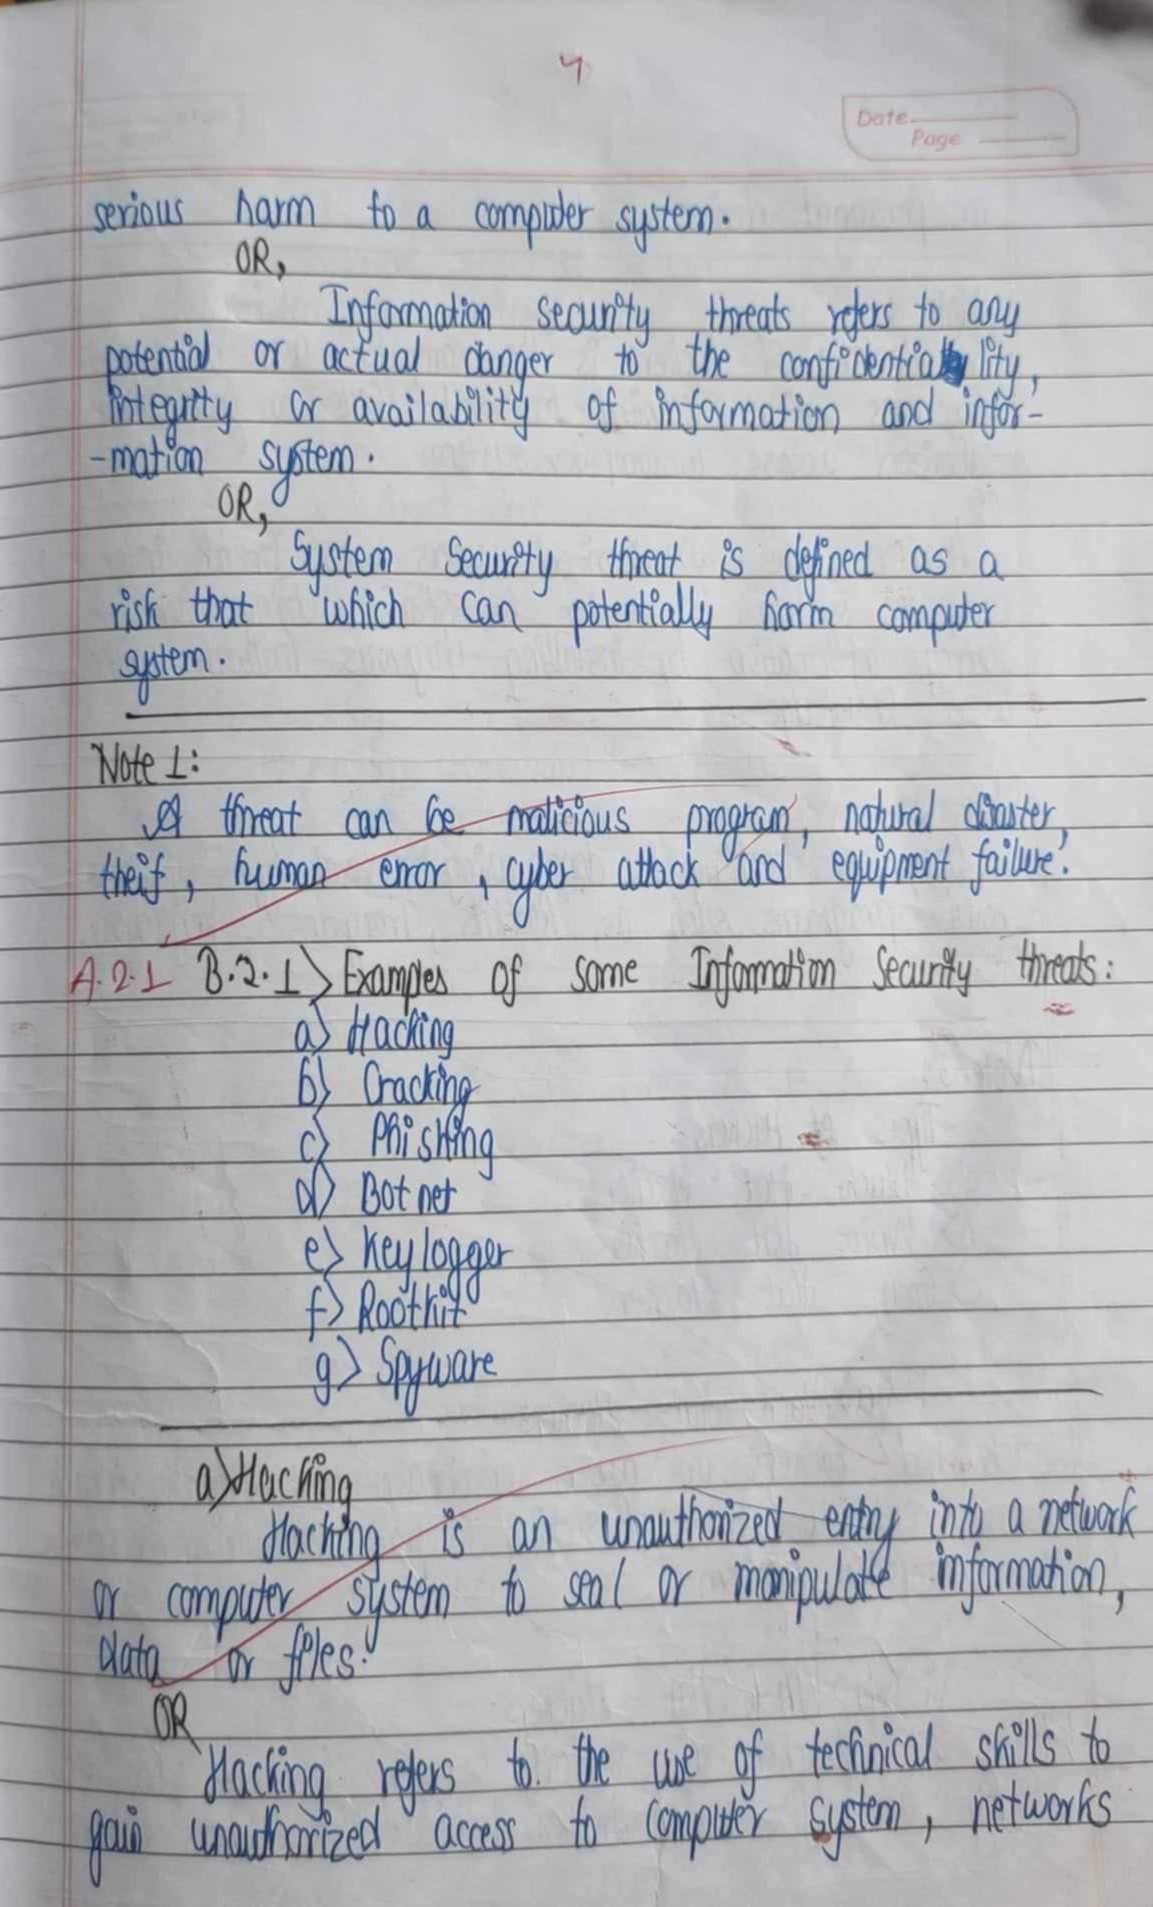 4
Date
Page
serious harm to a computer system.
OR,
Information security threats refers to any
potential or actual danger to the confidentiality,
integrity or availability of information and infor-
-mation system.
OR,
System Security threat is defined as a
risk that which can potentially harm computer
system.
Note 1:
A threat can be malicious program, natural disaster,
theif, human error, cyber attack and equipment failure.
A.2.1 B.2.1> Examples of some Information Security threats:
a> Hacking
b> Cracking
c> Phishing
d> Bot net
e> Key logger
f> Rootkit
g> Spyware
a> Hacking
Hacking is an unauthorized entry into a network
or computer system to seal or manipulate information,
data or files.
OR
Hacking refers to the use of technical skills to
gain unauthorized access to computer system, networks